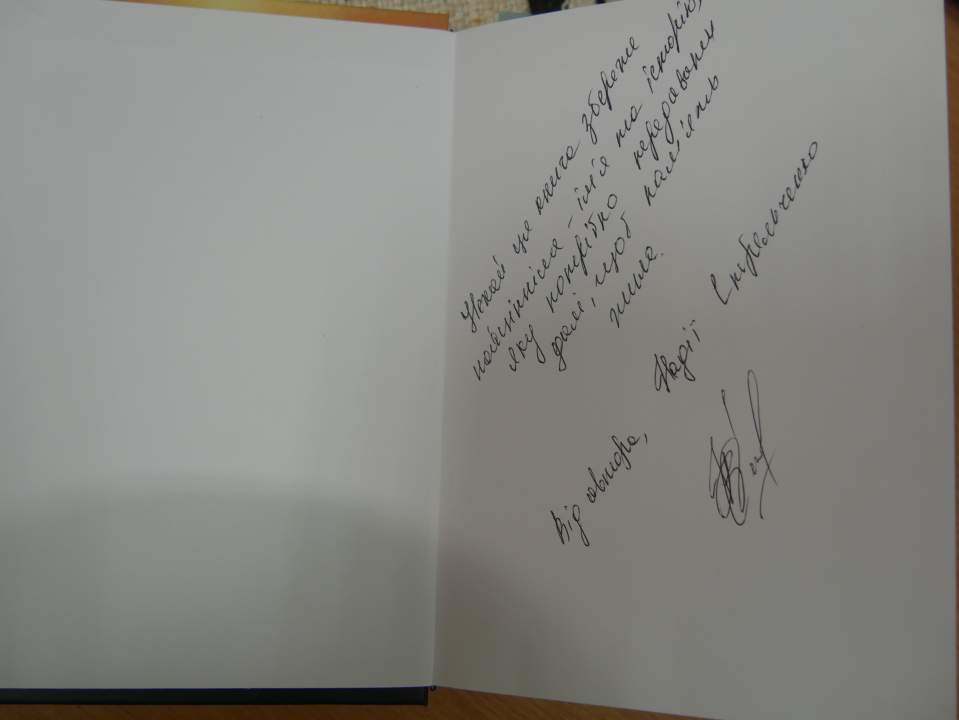 Нехай ця книга збереже
найцінніше - ім'я та історію,
яку потрібно передавати
далі, щоб пам'ять
жила.
Від автора, Надії Стрельченко